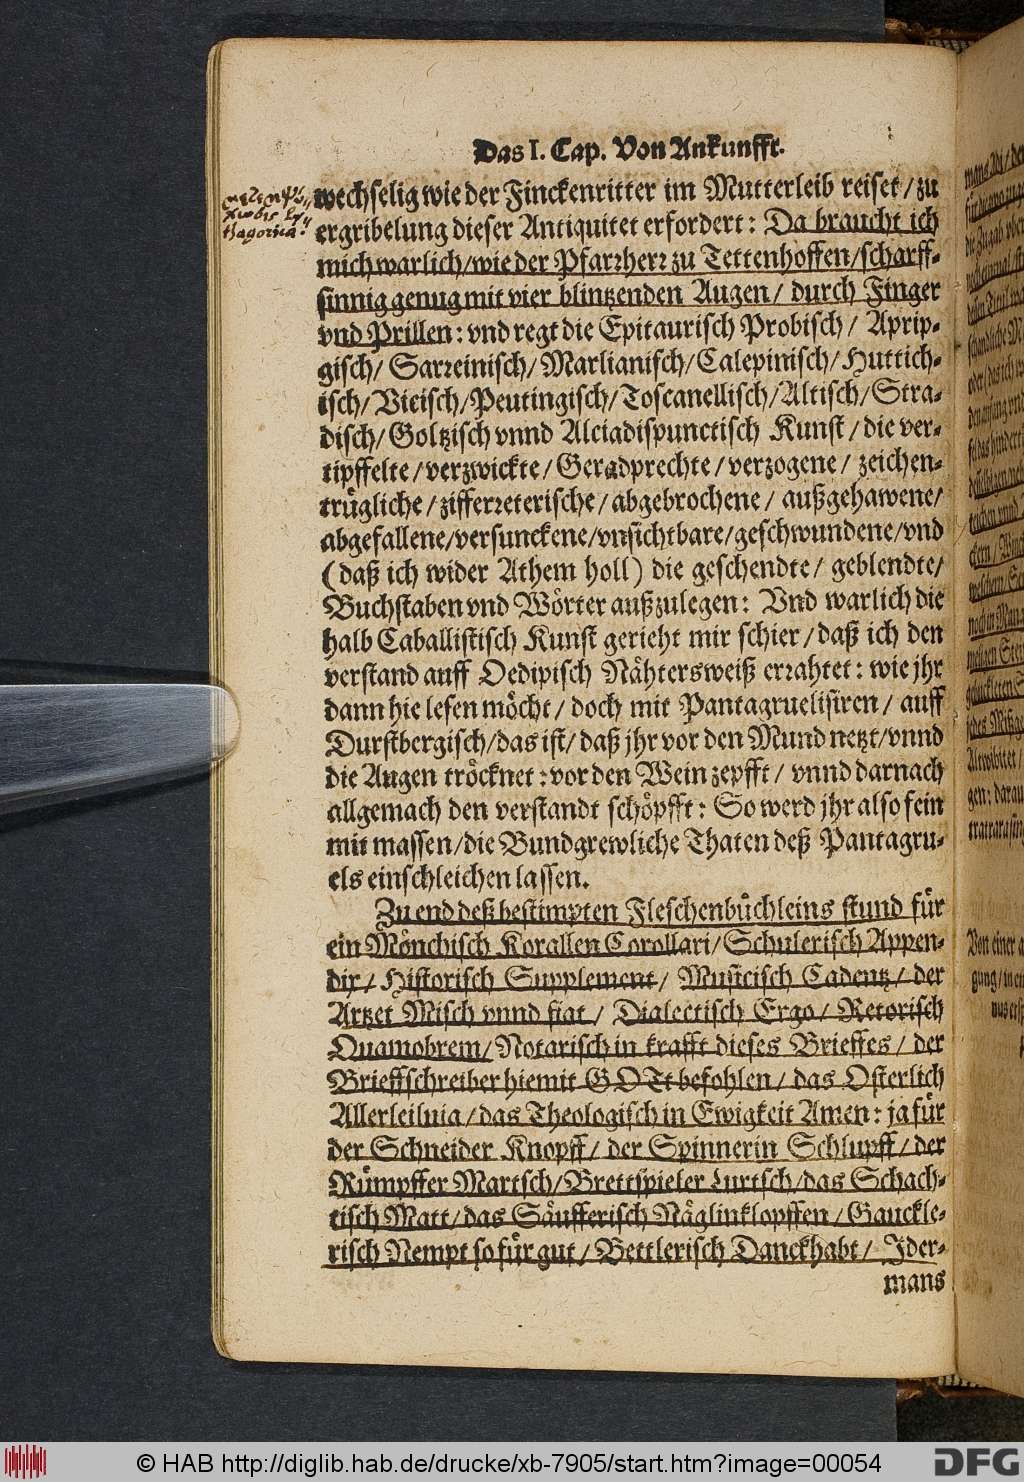 Das I. Cap. Von Ankunfft.
wechselig wie der Finckenritter im Mutterleib reiset / zu
ergribelung dieser Antiquitet erfordert: Da braucht ich
mich warlich/wie der Pfarrherr zu Tettenhoffen/scharff-
sinnig genug mit vier blintzenden Augen/ durch Finger
vnd Prillen: vnd regt die Epitaurisch Probisch/ Aprip-
gisch/ Sarreinisch/Marlianisch/Calepinisch/Huttich-
isch/Vieisch/Peutingisch/Toscanellisch/Altisch/Stra-
disch/Goltzisch vnnd Alciadispunctisch Kunst / die ver-
tipffelte / verzwickte / Geradprechte / verzogene / zeichen-
trügliche / zifferreterische / abgebrochene / außgehawene/
abgefallene/versunckene/vnsichtbare/geschwundene/vnd
(daß ich wider Athem holl) die geschendte/ geblendte/
Buchstaben vnd Wörter außzulegen: Vnd warlich die
halb Caballistisch Kunst gerieht mir schier / daß ich den
verstand auff Oedipisch Nähtersweiß errahtet: wie jhr
dann hie lesen möcht / doch mit Pantagruelisiren / auff
Durstbergisch/das ist/ daß jhr vor den Mund netzt/vnnd
die Augen tröcknet: vor den Wein zepfft / vnnd darnach
allgemach den verstandt schöpfft: So werd jhr also fein
mit massen/die Bundgrewliche Thaten deß Pantagru-
els einschleichen lassen.
Zu end deß bestimpten Fleschenbüchleins stund für
ein Mönchisch Korallen Corollari/Schulerisch Appen-
dix/ Historisch Supplement/ Musicisch Cadentz/ der
Artzet Misch vnnd fiat / Dialectisch Ergo / Retorisch
Quamobrem/Notarisch in krafft dieses Brieffes / der
Brieffschreiber hiemit GOTt befohlen/ das Osterlich
Allerleiluia / das Theologisch in Ewigkeit Amen: ja für
der Schneider Knopff/ der Spinnerin Schlupff/ der
Rümpffer Martsch/Brettspieler Lurtsch/das Schach-
tisch Matt/das Säufferisch Näglinklopffen/ Gauckle-
risch Nempt so für gut / Bettlerisch Danckhabt / Jder-
mans
© HAB http://diglib.hab.de/drucke/xb-7905/start.htm?image=00054
DFG